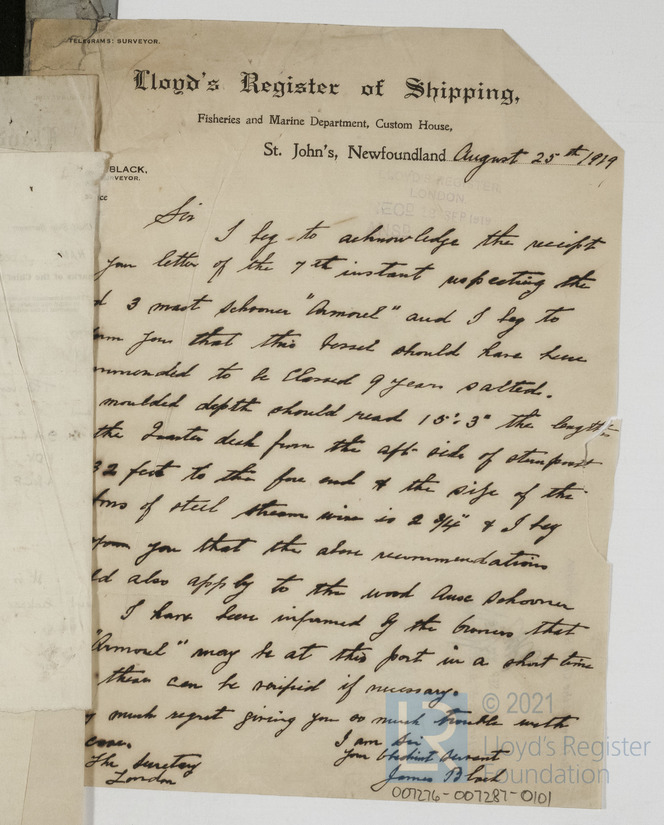 TELEGRAMS: SURVEYOR.
Lloyd's Register of Shipping,
Fisheries and Marine Department, Custom House,
St. John's, Newfoundland August 25th 1919
BLACK,
VEYOR.
LLOYD'S REGISTER
LONDON
SEP 1919
Sir
I beg to acknowledge the receipt
your letter of the 7th instant respecting the
3 mast schooner "Armorel" and I beg to
you that this Vessel should have been
mmended to be Classed 9 years salted.
moulded depth should read 15'.3" the length
the Quarter deck from the aft side of sternpost
32 feet to the fore end & the size of the
of steel stream wire is 2 3/4" & I beg
you that the above recommendations
ld also apply to the wood Aux schooner
I have been informed by the owners that
"Armorel" may be at this port in a short time
these can be verified if necessary.
much regret giving you so much trouble with
case.
I am Sir
Your Obedient Servant
James Black
The Secretary
London
007276-007287-0101
LR
© 2021
Lloyd's Register
Foundation